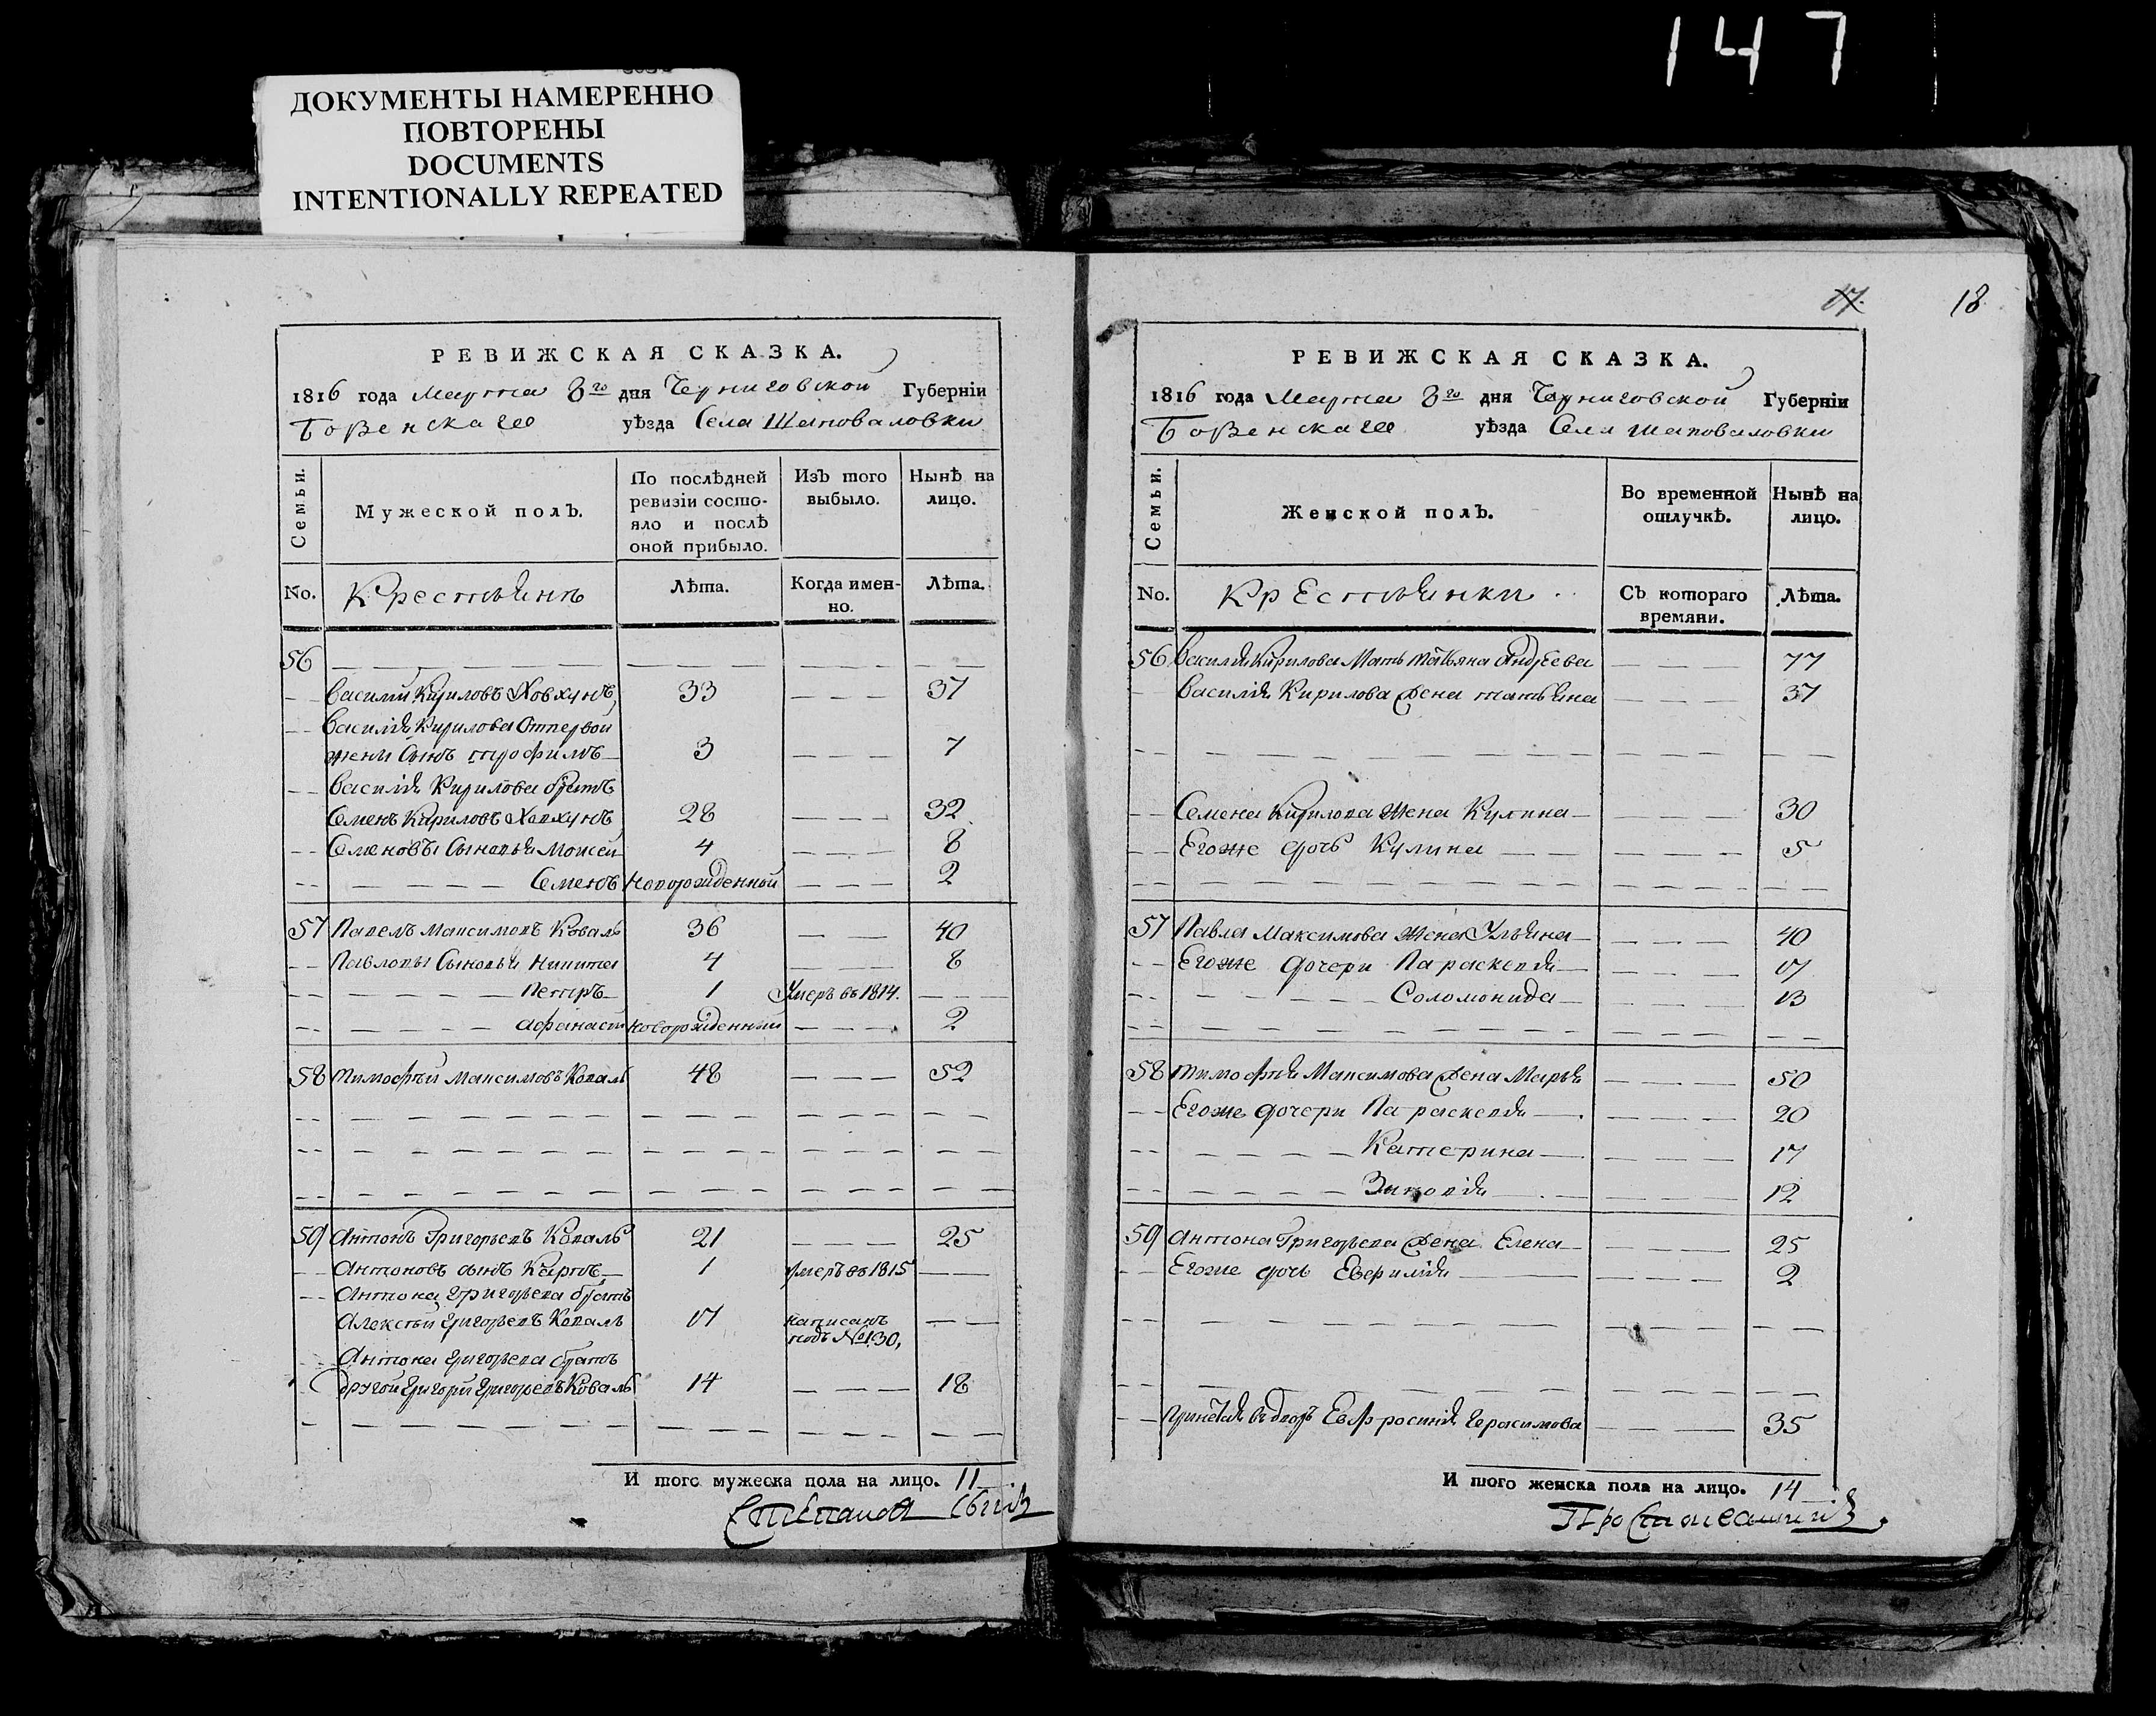 147
ДОКУМЕНТЫ НАМЕРЕННО
ПОВТОРЕНЫ
DOCUMENTS
INTENTIONALLY REPEATED
РЕВИЖСКАЯ СКАЗКА.
1816 года Марта 3го дня Черниговской Губернїи
Борзенскаго уѣзда Села Шаповаловки
Семьи.
Мужеской полъ.
По послѣдней ревизїи состояло и послѣ оной прибыло.
Изъ того выбыло.
Нынѣ на лицо.
No. Крестьянъ Лѣта. Когда именно. Лѣта.
56 — — —
Василий Кириловъ Ховхунъ 33 — — — 37
Василія Кирилова отпервой
жени Сынъ трофимъ 3 — — 7
Василія Кирилова братъ
Семенъ Кириловъ Ховхунъ 28 — — — 32
Семеновы Сыновья Моисей 4 — — — 8
— — — Семенъ новорожденный — — — 2
57 Павелъ Максимовъ Коваль 36 — — 40
Павловы Сыновья Никита 4 — — 8
— — — Петръ 1 Умеръ въ 1814. — — —
— — — афанасій новорожденный — — — 2
58 тимофѣй Максимовъ Коваль 48 — — — 52
59 Антонъ Григорьевъ Коваль 21 — — — 25
Антоновъ сынъ Карпъ 1 умеръ въ 1815 — —
Антона григорьева братъ
Алексѣй григорьевъ Коваль 17 написанъ подъ № 130, — —
Антона григорьева братъ
другой григорій григорьевъ Коваль 14 — — — 18
И того мужеска пола на лицо. 11
Степанов
17. 18
РЕВИЖСКАЯ СКАЗКА.
1816 года Марта 3го дня Черниговской Губернїи
Борзенскаго уѣзда Села шаповаловки
Семьи.
Женской полъ.
Во временной отлучкѣ.
Нынѣ на лицо.
No. Крестьянки Съ котораго времяни. Лѣта.
56 Василія Кирилова Мать татьяна Андреева — — 77
Василія Кирилова жена татьяна — — — 37
Семена Кирилова жена Кулина — — — 30
Егоже дочь Кулина — — — 5
57 Павла Максимова жена Ульяна — — — 40
Егоже дочери Параскевія — — — 17
— — — Соломонида — — — 13
58 тимофѣя Максимова жена Марья — — — 50
Егоже дочери Параскевія — — — 20
— — — Катерина — — — 17
— — — Зиновія — — — 12
59 антона Григорьева жена Елена — — — 25
Егоже дочь — — — 2
Принятая въ дворъ Евфросинія Герасимова — — — 35
И того женска пола на лицо. 14